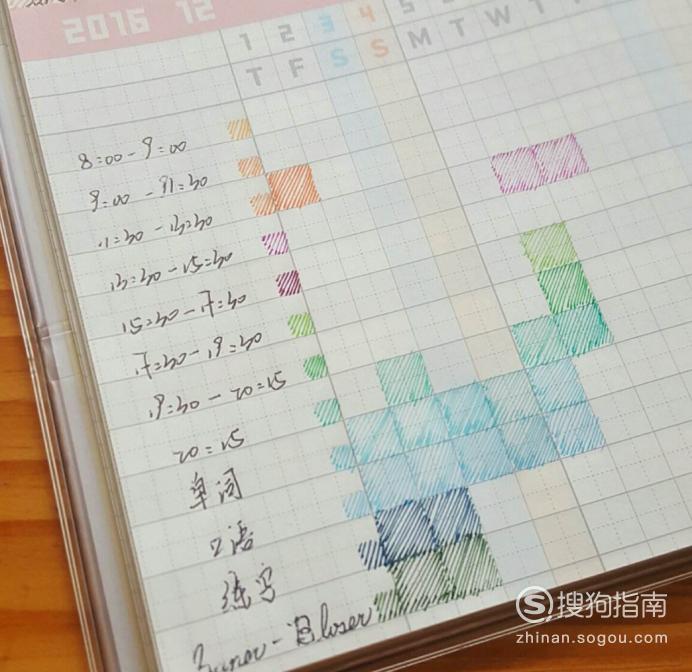 2016 12
1 2 3 4 5
T F S S M T W T
8:00-9:00
9:00-11:30
11:30-13:30
13:30-15:30
15:30-17:30
17:30-19:30
19:30-20:15
20:15
单词
2语
练字
搜狗指南
zhinan.sogou.com